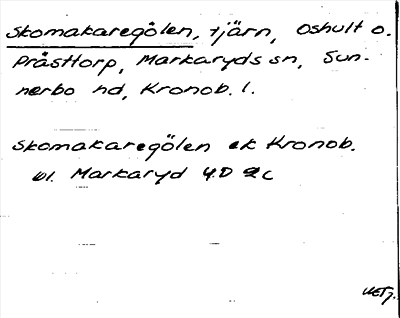 Skomakaregölen, tjärn, Oshult o.
Prästtorp, Markaryds sn, Sun-
nerbo hd, Kronob. l.
Skomakaregölen ek Kronob.
bl. Markaryd 4D 2c